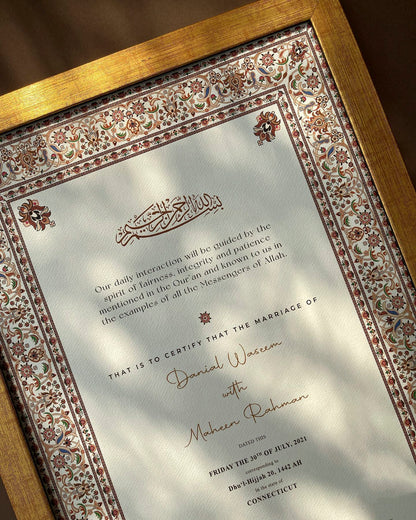 بسم الله الرحمن الرحيم
Our daily interaction will be guided by the
spirit of fairness, integrity and patience
mentioned in the Qur'an and known to us in
the examples of all the Messengers of Allah.
THAT IS TO CERTIFY THAT THE MARRIAGE OF
Danial Waseem
with
Maheen Rahman
DATED THIS
FRIDAY THE 30TH OF JULY, 2021
corresponding to
Dhu'l-Hijjah 20, 1442 AH
in the state of
CONNECTICUT